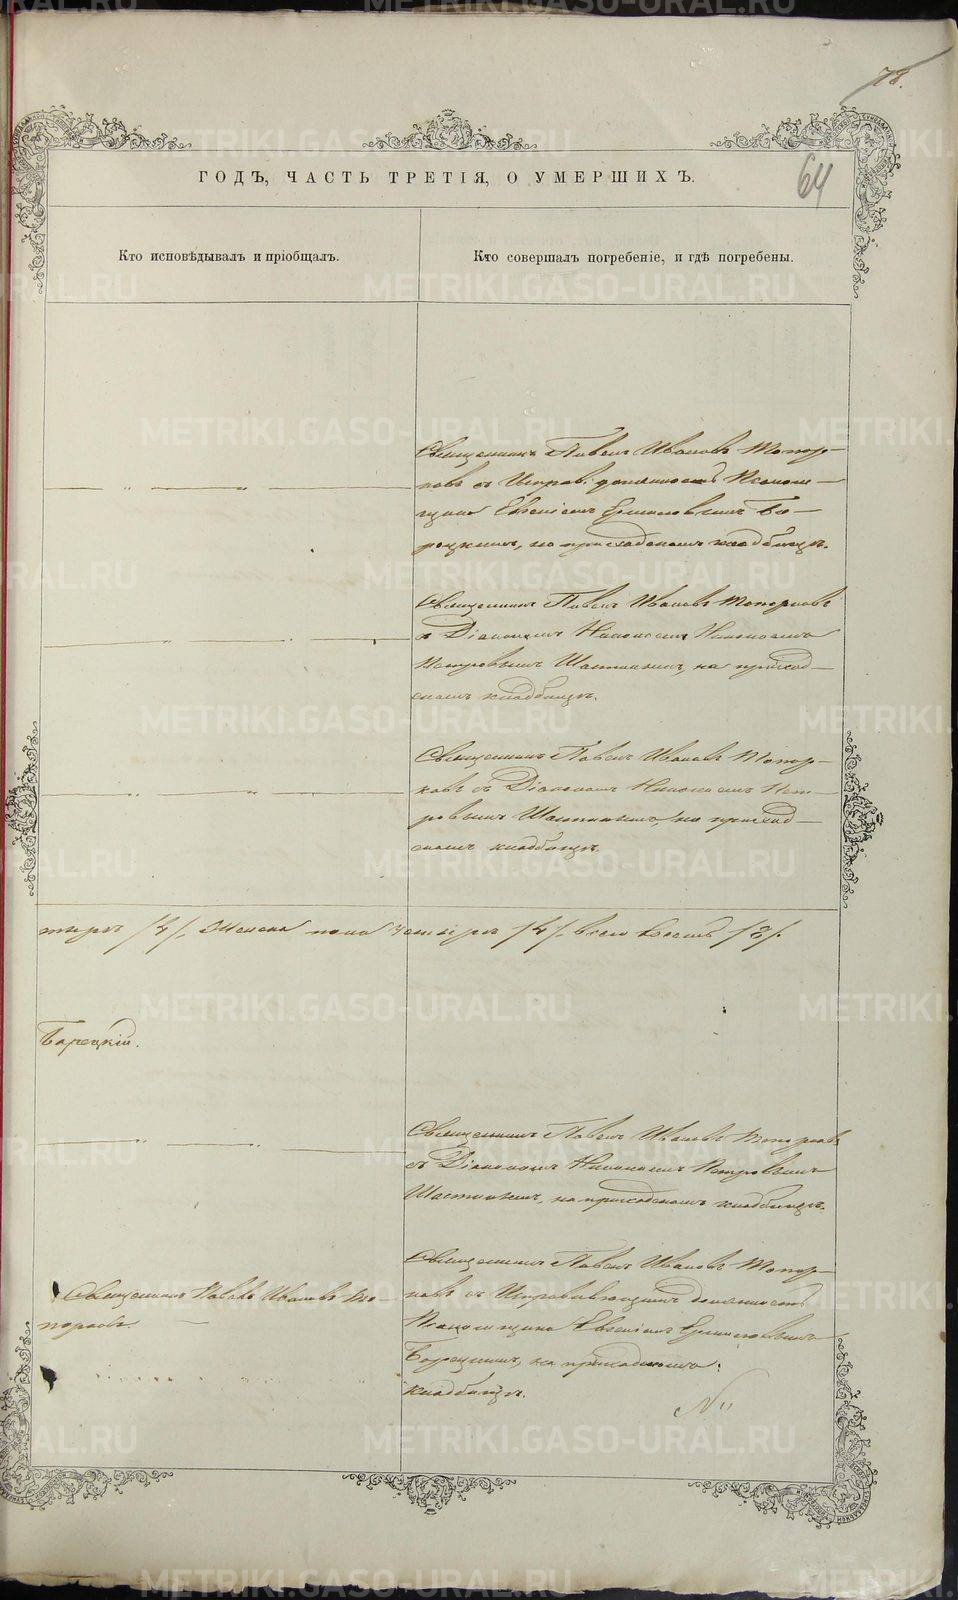 78.
64
ГОДЪ, ЧАСТЬ ТРЕТІЯ, О УМЕРШИХЪ.
Кто исповѣдывалъ и пріобщалъ.
Кто совершалъ погребеніе, и гдѣ погребены.
Священникъ Павелъ Ивановъ Топор-
ковъ съ Исправ. должность Псалом-
щика Евгеніемъ Бо-
рецкимъ, на приходскомъ кладбищѣ.
Священникъ Павелъ Ивановъ Топорковъ
съ Діакономъ Николаемъ
Петровымъ на приход-
скомъ кладбищѣ.
Священникъ Павелъ Ивановъ Топор-
ковъ съ Діакономъ Николаемъ Пет-
ровымъ на приход-
скомъ кладбищѣ.
тыре /4/. Женска пола Четыре /4/. всего восемь /8/.
Барецкій.
Священникъ Павелъ Ивановъ Топорковъ
съ Діакономъ Николаемъ Петровымъ
на приходскомъ кладбищѣ.
Священникъ Павелъ Ивановъ То-
порковъ.
Священникъ Павелъ Ивановъ Топор-
ковъ съ Исправляющимъ должность
Псаломщика Евгеніемъ
Борецкимъ, на приходскомъ
кладбищѣ.
METRIKI.GASO-URAL.RU